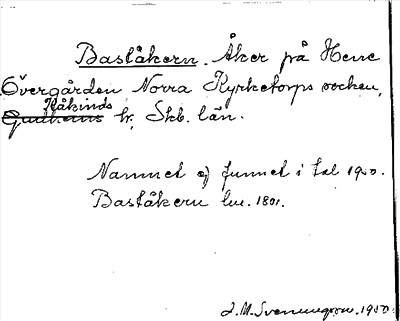 Baståkern. Åker på Herre
Övergården Norra Kyrketorps socken,
Kåkinds
Gudhems hr, Skb. län.
Namnet ej funnet i tal 1950.
Baståkern lm. 1801.
1950.